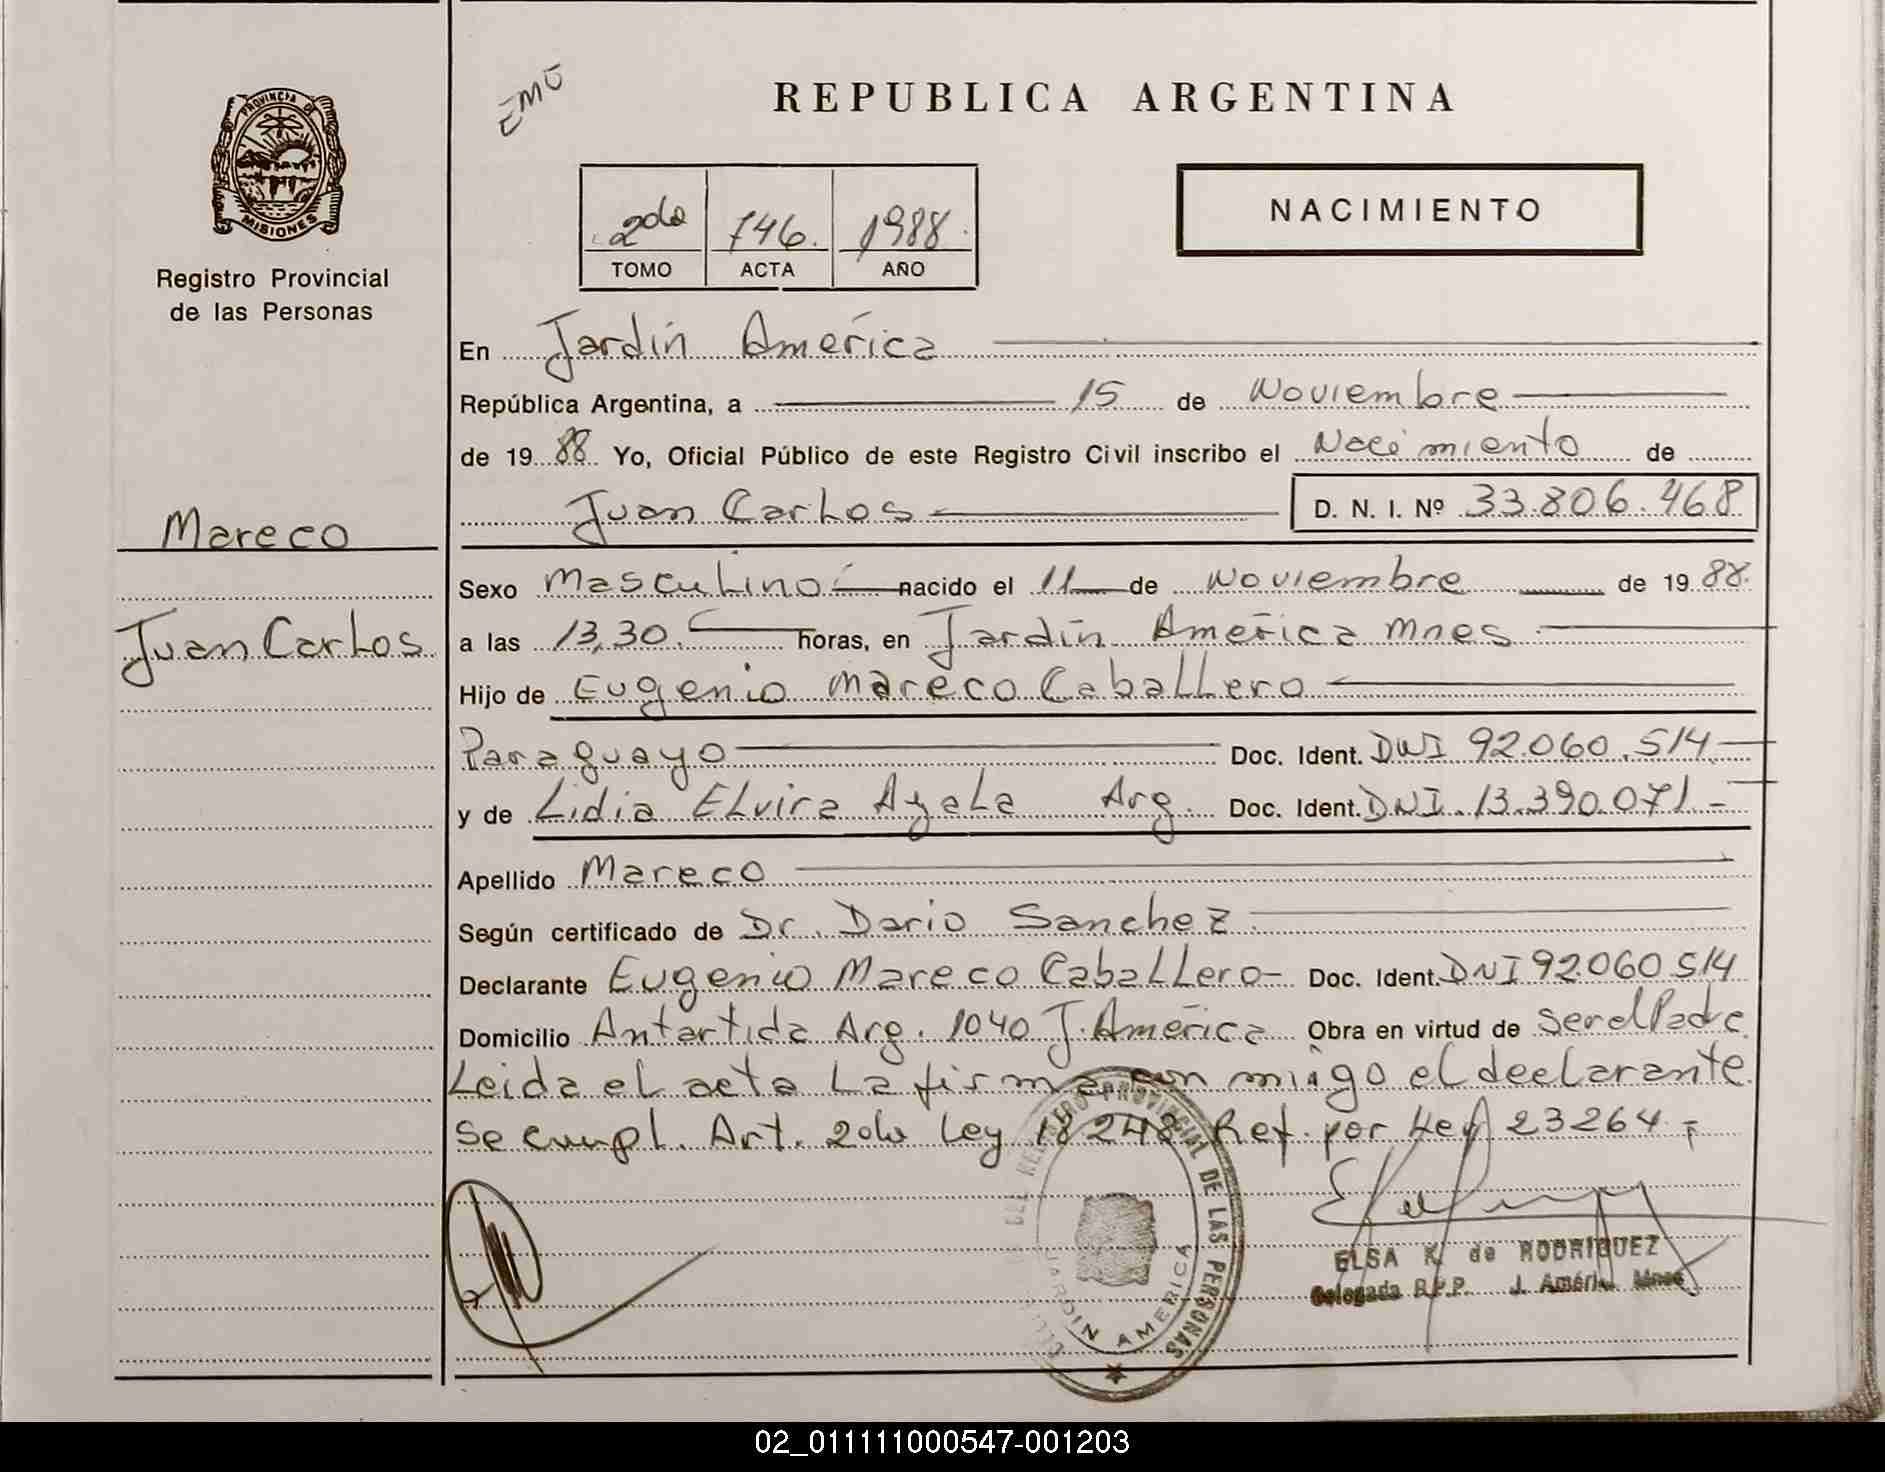 PROVINCIA DE
MISIONES
Registro Provincial
de las Personas
Mareco
Juan Carlos
REPUBLICA ARGENTINA
NACIMIENTO
2do 746. 1988.
TOMO ACTA AÑO
En Jardín América
República Argentina, a 15 de Noviembre
de 19 88 Yo, Oficial Público de este Registro Civil inscribo el Nacimiento de
Juan Carlos D. N. I. Nº 33.806.468
Sexo Masculino nacido el 11 de Noviembre de 19 88.
a las 13,30. horas, en Jardín América Mnes
Hijo de Eugenio Mareco Caballero
Paraguayo Doc. Ident. DNI 92.060.514
y de Lidia Elvira Ayala Arg. Doc. Ident. DNI. 13.390.071.-
Apellido Mareco
Según certificado de Dr. Dario Sanchez
Declarante Eugenio Mareco Caballero- Doc. Ident. DNI 92.060514
Domicilio Antartida Arg. 1040 J. América Obra en virtud de ser el Padre
Leida el acta La firma con migo el declarante.
Se cumpl. Art. 2do Ley 18248 Ref. por Ley 23264.-
REGISTRO PROVINCIAL DE LAS PERSONAS
JARDIN AMERICA
ELSA K. de RODRIGUEZ
Delegada R.P.P. J. Améric. Mnes
02_011111000547-001203